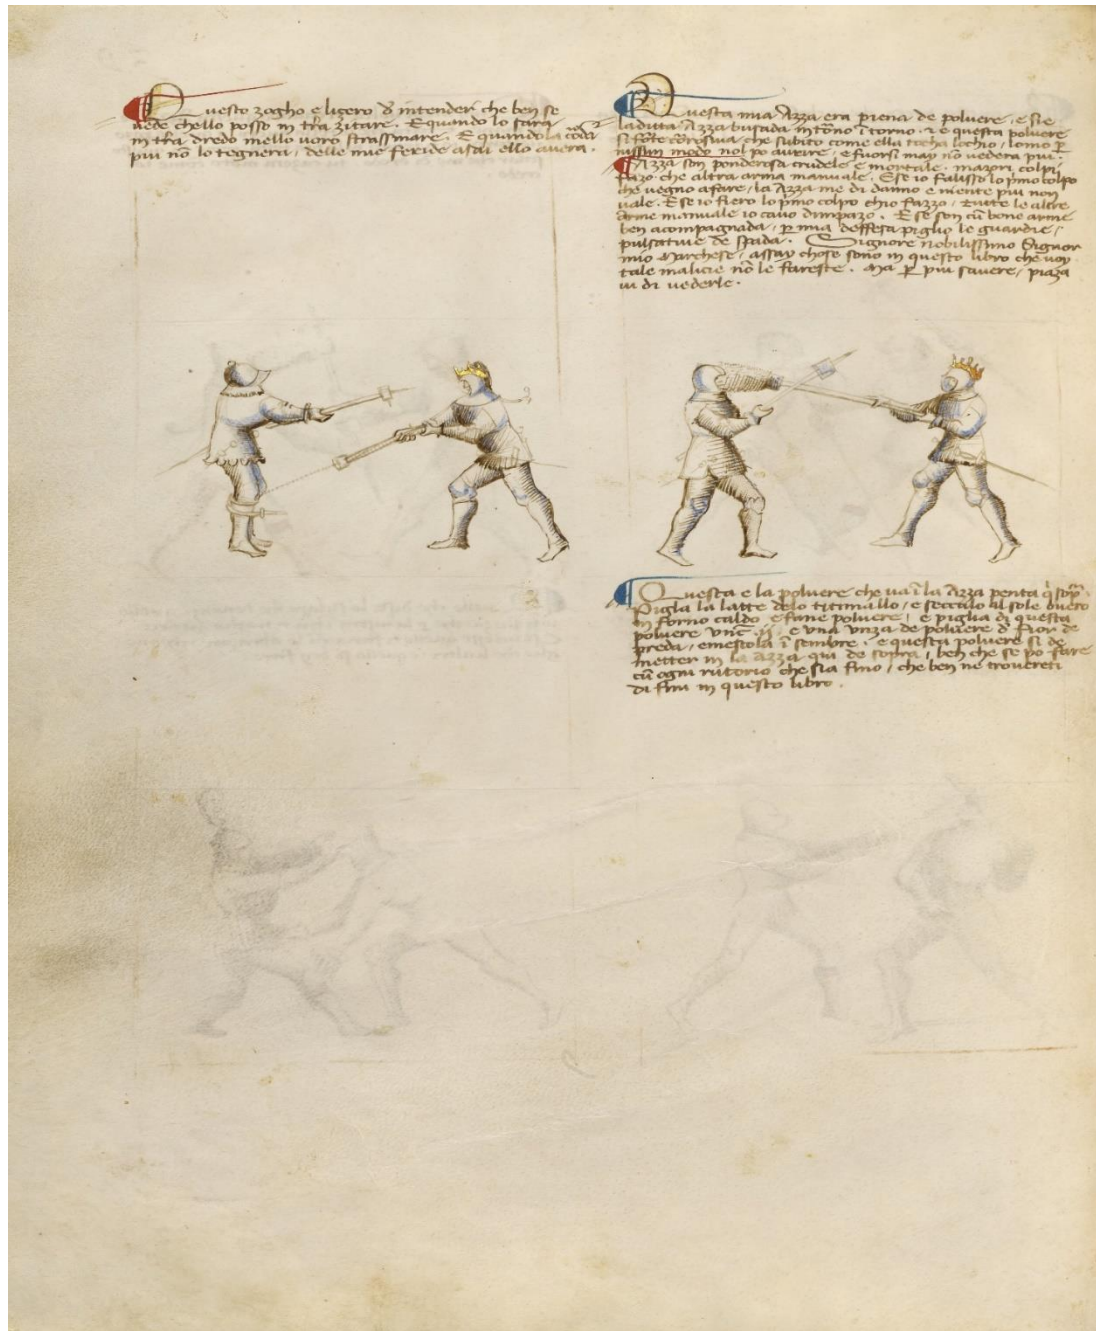 Questo zogho e liçero d intender che ben se
vede chello posso in tera zitare. E quando lo sarà
in tera dredo mello voro strassinare. E quando la coda
piu non lo tegnera, delle mie feride asai ello avera.
Questa mia Azza era piena de polvere, e si e
la dita Azza busada intorno intorno. et e questa polvere
si forte corosiva che subito come ella tocha lochio, lomo per
nissun modo nol po avrire, e fuorsi may non vedera piu.
Azza son ponderosa crudele e mortale, mazori colpi
fazo che altra arma manuale. E se io falisso lo primo colpo
che vegno a fare, la Azza me di danno e niente piu non
vale. E se io fiero lo primo colpo chio fazzo, tutte le altre
arme manuale io cavo dimpazo. E se son cum bone arme
ben acompagnada, per mia deffesa piglio le guardie,
pulsative de spada. Signore nobilissimo Signor
mio Marchese, assay chose sono in questo libro che voy
tale malicie non le fareste. Ma per piu savere, piaza
vi di vederle.
Questa e la polvere che va in la Azza penta qui sopra.
Pigla la latte delo titimallo, e seccalo al sole overo
in forno caldo e fane polvere, e piglia di questa
polvere unc. ii. e una unza de polvere d Fior de
preda, e mescola insembre, e questa polvere si de
metter in la Azza qui de sopra, ben che se po fare
cum ogni rutorio che sia fino, che ben ne trovereti
di fini in questo libro.